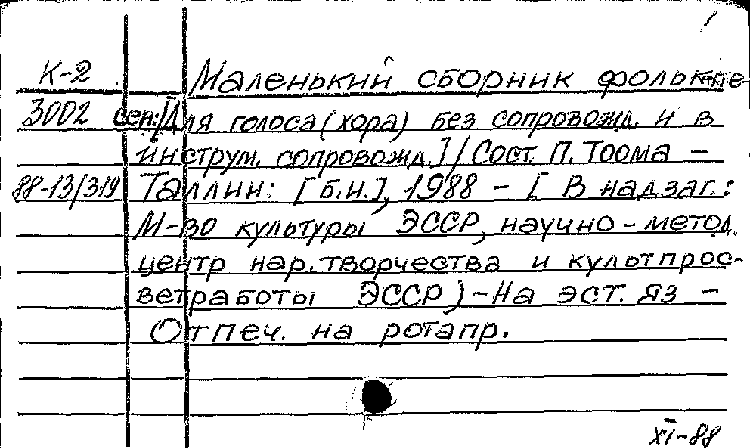 1
К-2 Маленький сборник фолькпе-
3002 сен:[Для голоса (хора) без сопровожд. и в
инструм. сопровожд.]/Сост. П. Тоома –
88-13/319 Таллин: [б.и.], 1988 – [ В надзаг.:
М-во культуры ЭССР, научно-метод.
центр нар. творчества и культпрос-
ветработы ЭССР)-На эст. яз –
Отпеч. на ротапр.
XI-88